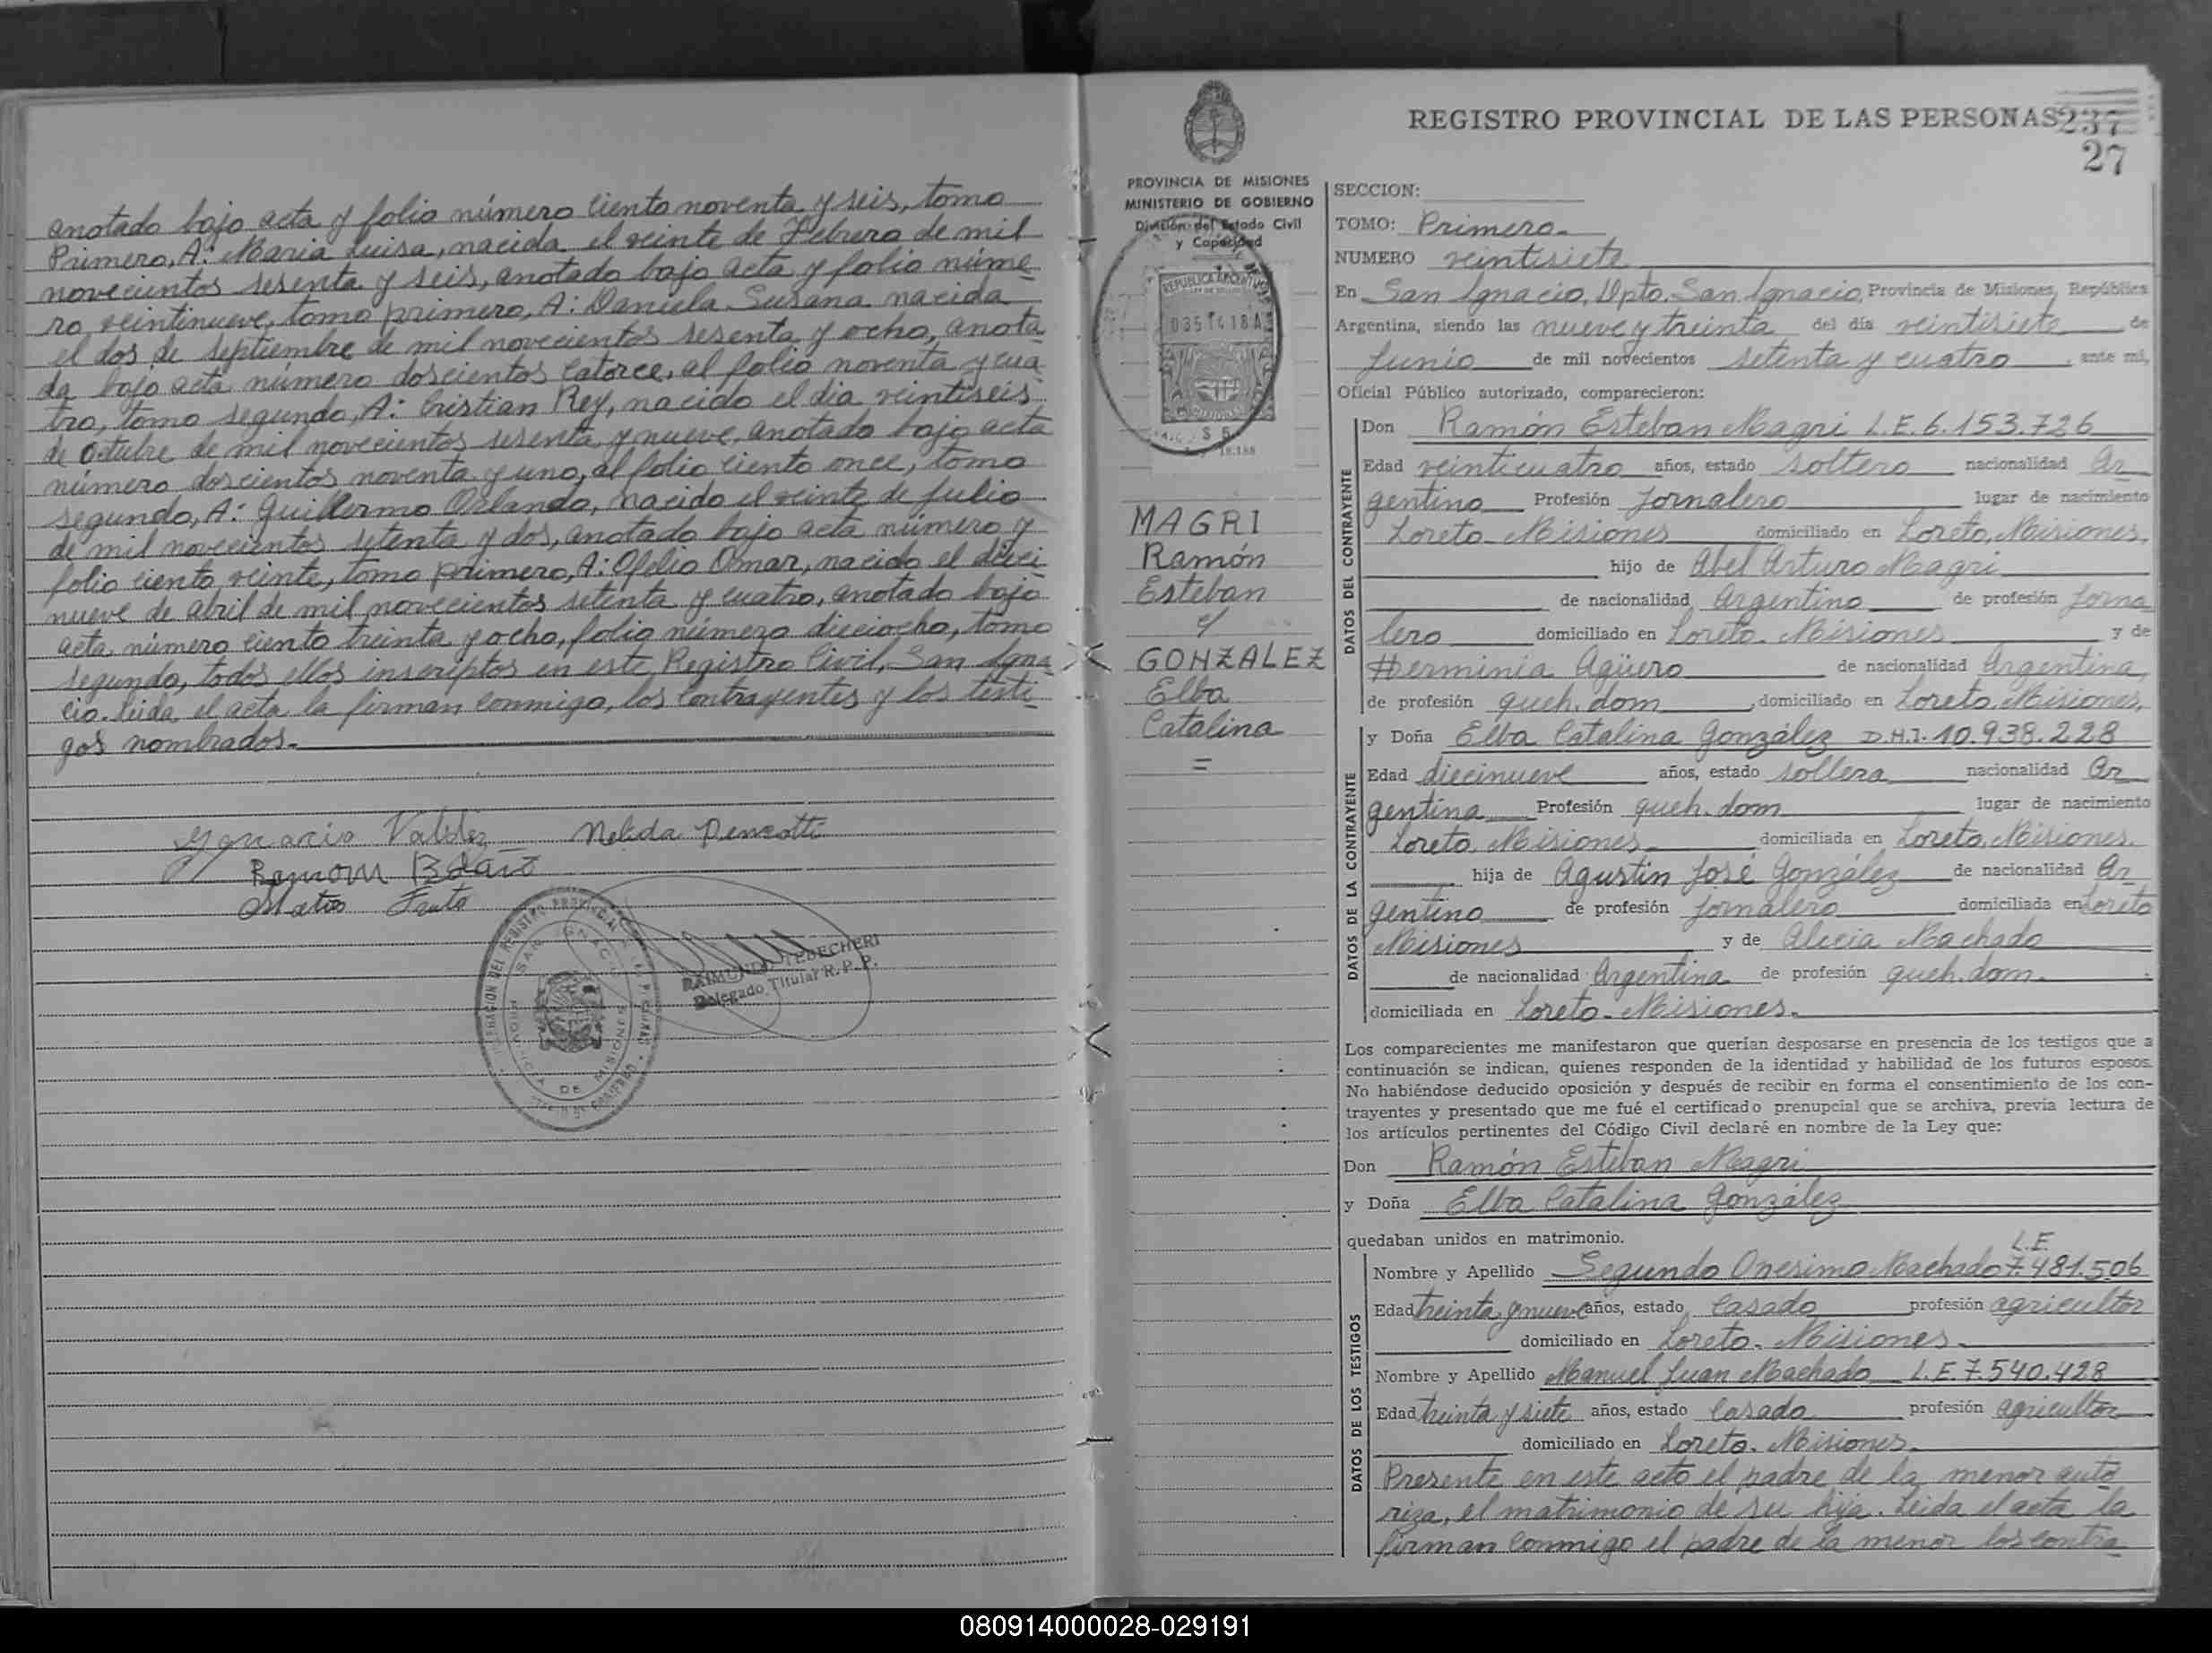 anotado bajo acta y folio número ciento noventa y seis, tomo
Primero, A: Maria Luisa, nacida el veinte de Febrero de mil
novecientos sesenta y seis, anotado bajo acta y folio núme
ro veintinueve, tomo primero, A: Daniela Susana nacida
el dos de Septiembre de mil novecientos sesenta y ocho, anota
da bajo acta número doscientos catorce, al folio noventa y cua
tro, tomo segundo, A: Cristian Rey, nacido el dia veintiseis
de Octubre de mil novecientos sesenta y nueve, anotado bajo acta
número doscientos noventa y uno, al folio ciento once, tomo
segundo, A: Guillermo Orlando, nacido el veinte de Julio
de mil novecientos setenta y dos, anotado bajo acta número y
folio ciento veinte, tomo primero, A: Ofelio Omar, nacido el dieci
nueve de abril de mil novecientos setenta y cuatro, anotado bajo
acta número ciento treinta y ocho, folio número dieciocho, tomo
segundo, todos ellos inscriptos en este Registro Civil, San Igna
cio. Leida el acta la firman conmigo, los contrayentes y los testi-
gos nombrados.-
Ygnacio Valdez Nelida
Ramon
Mateo
RAIMUNDO TEBECHERI
Delegado Titular R. P. P.
REGISTRO PROVINCIAL DE LAS PERSONAS 237
27
PROVINCIA DE MISIONES
MINISTERIO DE GOBIERNO
División del Estado Civil
y Capacidad
REPUBLICA ARGENTINA
$ 5
MAGRI
Ramón
Esteban
c/
GONZALEZ
Elba
Catalina
=
SECCION:
TOMO: Primero.
NUMERO veintisiete
En San Ignacio, Dpto. San Ignacio, Provincia de Misiones, República
Argentina, siendo las nueve y treinta del día veintisiete de
Junio de mil novecientos setenta y cuatro, ante mí,
Oficial Público autorizado, comparecieron:
DATOS DEL CONTRAYENTE
Don Ramón Esteban Magri L.E. 6.153.726
Edad veinticuatro años, estado soltero nacionalidad Ar
gentino Profesión Jornalero lugar de nacimiento
Loreto - Misiones domiciliado en Loreto, Misiones,
hijo de Abel Arturo Magri
de nacionalidad Argentino de profesión Jorna
lero domiciliado en Loreto - Misiones y de
Herminia Agüero de nacionalidad Argentina,
de profesión queh. dom, domiciliado en Loreto, Misiones,
DATOS DE LA CONTRAYENTE
y Doña Elba Catalina González D.N.I. 10.938.228
Edad diecinueve años, estado soltera nacionalidad Ar
gentina Profesión queh. dom lugar de nacimiento
Loreto, Misiones domiciliada en Loreto, Misiones.
hija de Agustin José González de nacionalidad Ar
gentino de profesión Jornalero domiciliada en Loreto
Misiones y de Alicia Machado
de nacionalidad Argentina de profesión queh. dom.
domiciliada en Loreto - Misiones.
Los comparecientes me manifestaron que querían desposarse en presencia de los testigos que a
continuación se indican, quienes responden de la identidad y habilidad de los futuros esposos.
No habiéndose deducido oposición y después de recibir en forma el consentimiento de los con-
trayentes y presentado que me fué el certificado prenupcial que se archiva, previa lectura de
los artículos pertinentes del Código Civil declaré en nombre de la Ley que:
Don Ramón Esteban Magri
y Doña Elba Catalina González
quedaban unidos en matrimonio.
DATOS DE LOS TESTIGOS
L.E.
Nombre y Apellido Segundo Onesimo Machado 7.481.506
Edad treinta y nueve años, estado Casado profesión agricultor
domiciliado en Loreto - Misiones
Nombre y Apellido Manuel Juan Machado L.E. 7.540.428
Edad treinta y siete años, estado Casado profesión agricultor
domiciliado en Loreto. Misiones.
Presente en este acto el padre de la menor auto
riza, el matrimonio de su hija. Leida el acta la
firman conmigo el padre de la menor los contra
080914000028-029191